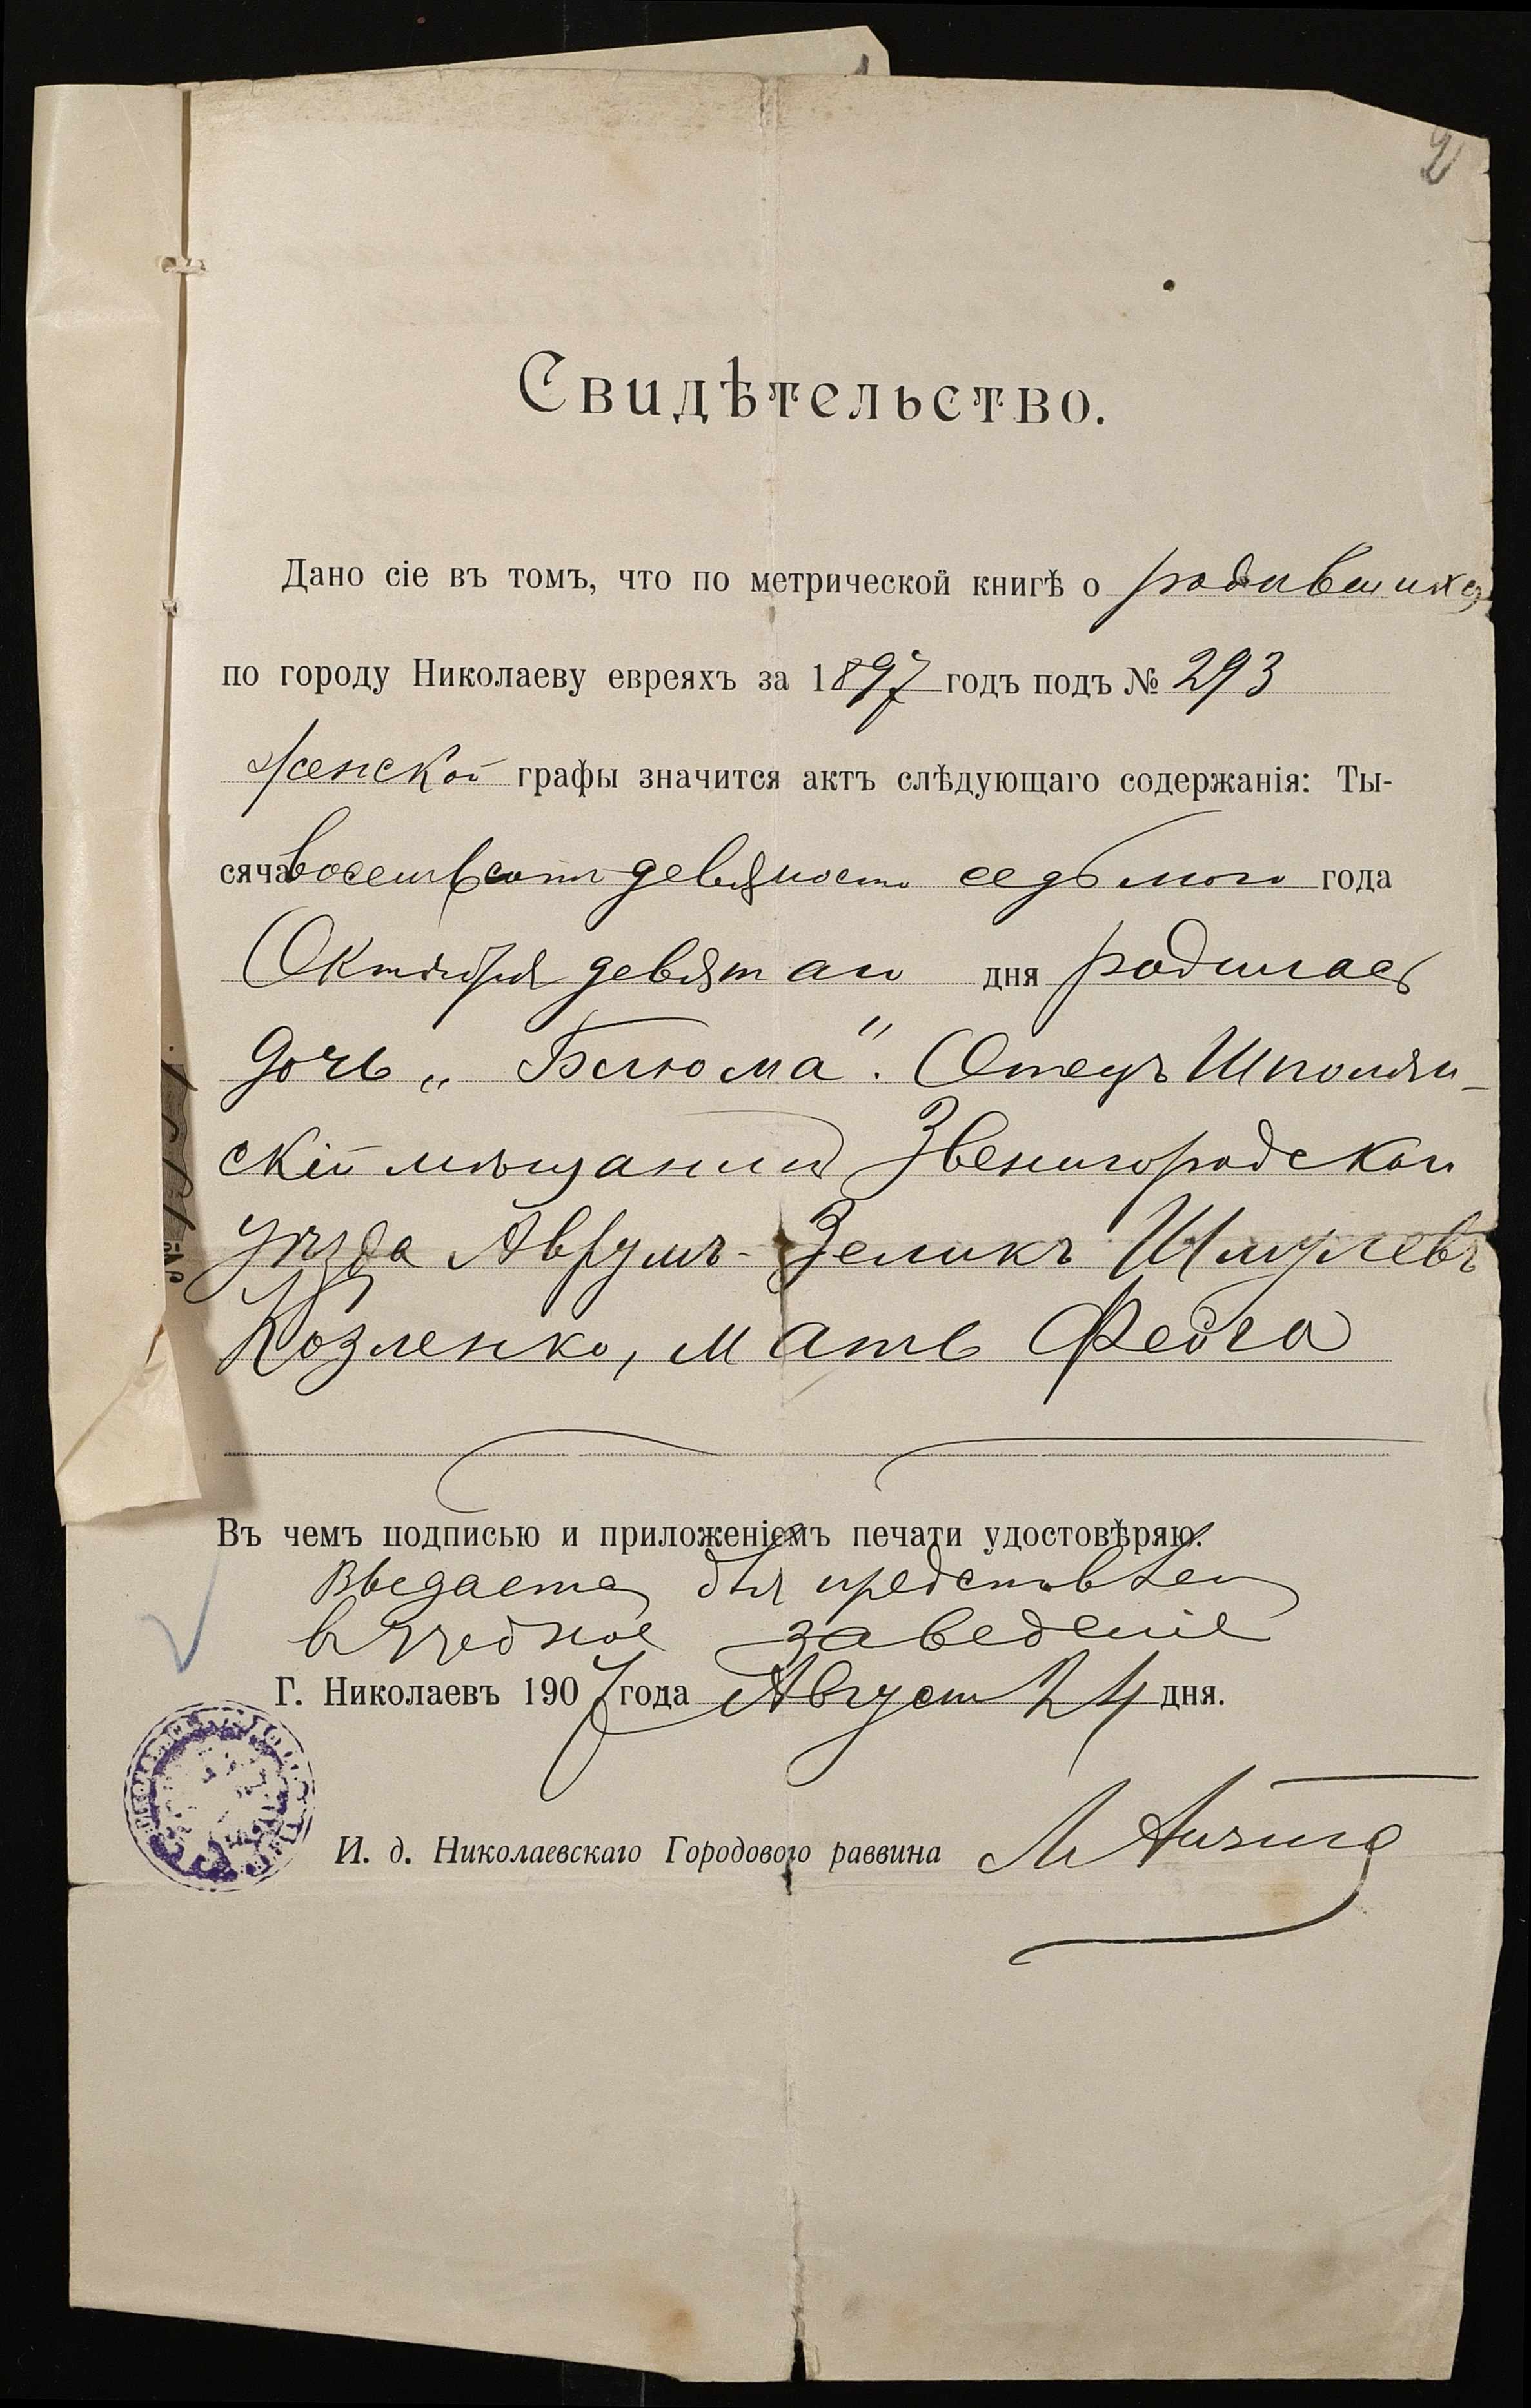 2
Свидѣтельство.
Дано сіе въ томъ, что по метрической книгѣ о родившихся
по городу Николаеву евреяхъ за 1897 годъ подъ № 293
женской графы значится актъ слѣдующаго содержанія: Ты-
сяча восемьсотъ девяносто седьмого года
Октября девятаго дня родилась
дочь „Блюма". Отецъ Шполян-
скій мѣщанинъ Звенигородскаго
уѣзда Аврумъ-Зеликъ Шмулевъ
Козленко, мать Фейга
Въ чемъ подписью и приложеніемъ печати удостовѣряю.
Выдается для представлен
въ учебное заведеніе
Г. Николаевъ 1907 года Август 24 дня.
И. д. Николаевскаго Городового раввина